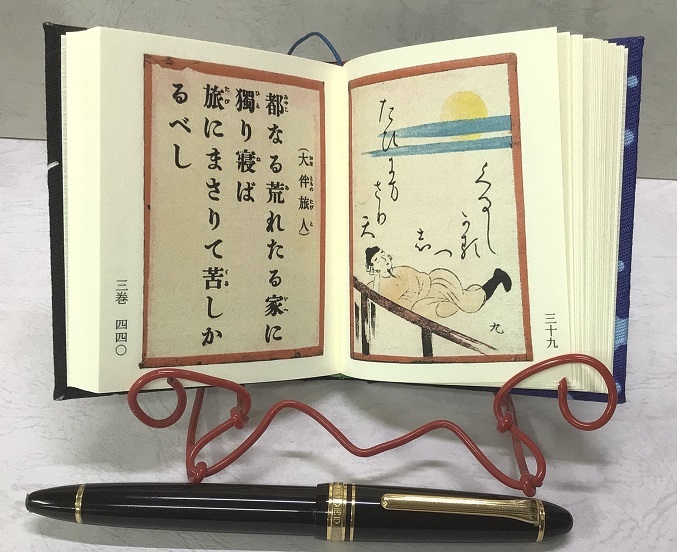 三十九
たひにまさり天
くるし
かる
へ志
九
（大伴旅人）
都なる荒れたる家に
獨り寢ば
旅にまさりて苦しか
るべし
三巻 四四〇